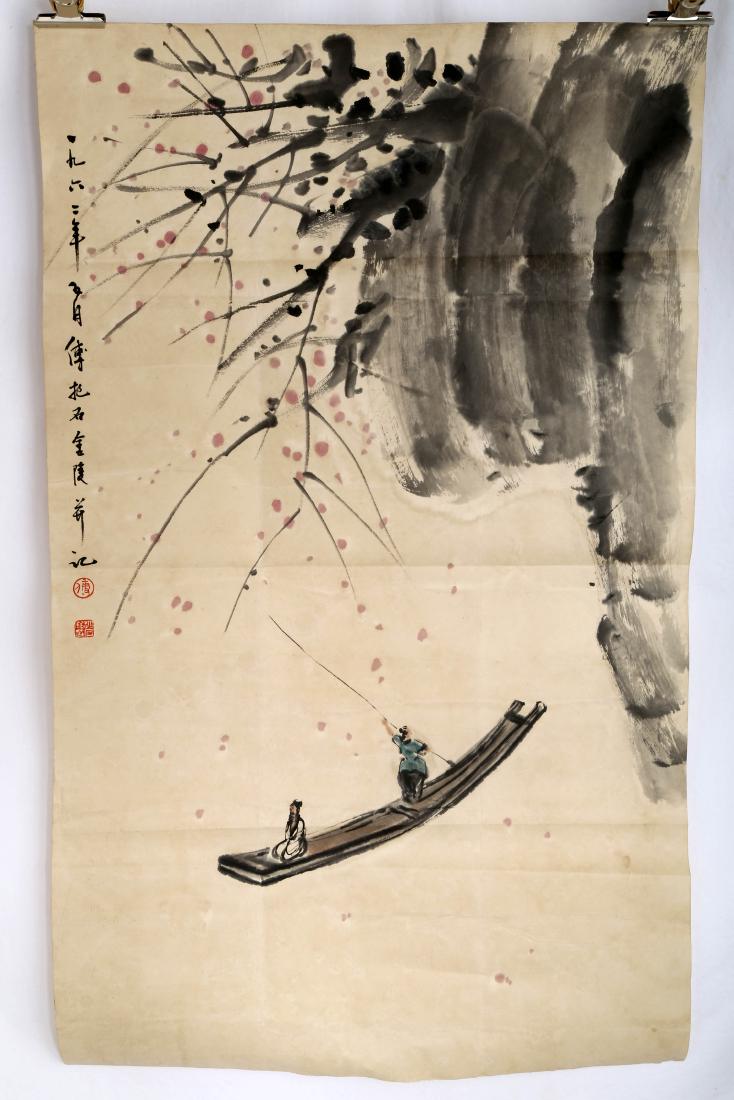 一九六二年五月傅抱石金陵並记
傅